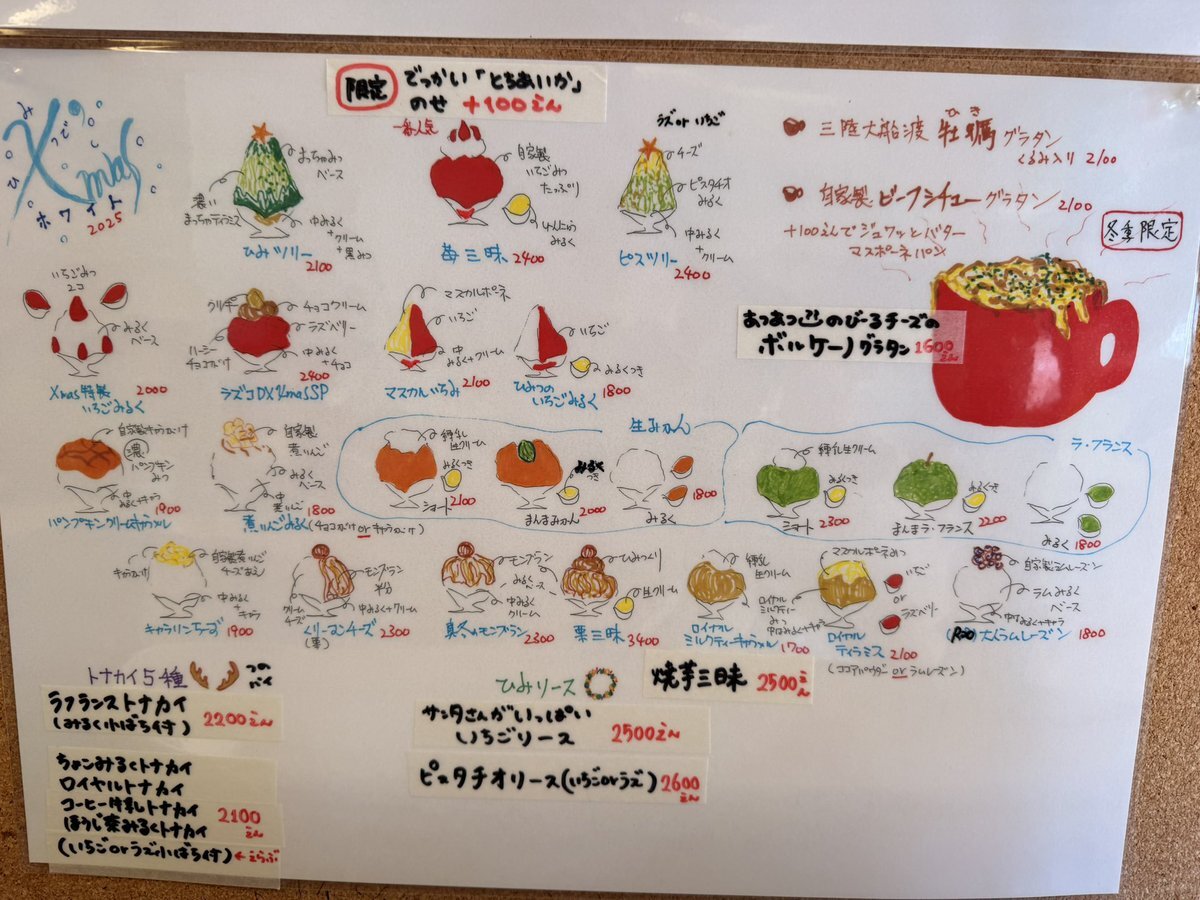 限定 でっかい「とちあいか」
のせ +100えん
ひみつでの
Xmas
ホワイト
2025
まっちゃみつ
ベース
濃い
まっちゃティラミス
中みるく
+
クリーム
+
黒みつ
ひみツリー
2100
一番人気
自家製
いちごみつ
たっぷり
みるく
苺三昧 2400
ラズorいちご
チーズ
ピスタチオ
みるく
中みるく
+
クリーム
ピスツリー
2400
三陸大船渡 牡蠣グラタン
くるみ入り 2100
自家製ビーフシチューグラタン 2100
+100えんでジュワッとバター
マスポーネパン
冬季限定
あつあつ のびーるチーズの
ボルケーノグラタン 1600えん
いちごみつ
2コ
みるく
ベース
Xmas特製 2000
いちごみるく
クッキー
チョコクリーム
ラズベリー
ハーシー
チョコがけ
中みるく
+
チョコ
2400
ラズコDXXmasSP
マスカルポーネ
いちご
中
みるく+クリーム
マスカルいちみ 2100
いちご
みるくつき
ひみつの
いちごみるく 1800
自家製キャラがけ
濃
パンプキン
みつ
中
みるく+キャラ
1900
パンプキンクリームキャラメル
自家製
煮りんご
みるく
ベース
中
煮りんご
1800
煮りんごみるく(チョコがけorキャラがけ)
生みかん
練乳
生クリーム
みるくつき
2100
ショート
みるく
つき
まんまみかん 2000
1800
みるく
ラ・フランス
練乳生クリーム
みるくつき
ショート 2300
みるくつき
まんまラ・フランス 2200
みるく 1800
キャラがけ
自家製煮りんご
チーズあえ
中みるく
+
キャラ
キャラリンちーず 1900
モンブラン
半分
クリーム
チーズ
中みるく+クリーム
くりーむチーズ 2300
(栗)
モンブラン
みるくベース
中みるく
クリーム
真冬のモンブラン
2300
ひみつくり
生クリーム
栗三昧 3400
練乳
生クリーム
ロイヤル
ミルクティー
みつ
中みるく+キャラ
ロイヤル
ミルクティーキャラメル 1700
マスカルポーネみつ
いちご
or
ラズベリー
ロイヤル
ティラミス 2100
(ココアパウダーorラムレーズン)
自家製ラムレーズン
ラムみるく
ベース
中みるく+キャラ
大人ラムレーズン 1800
トナカイ5種
つの
パイ
ラフランストナカイ
(みるく小ばち付) 2200えん
ちょこみるくトナカイ
ロイヤルトナカイ
コーヒー牛乳トナカイ 2100
ほうじ茶みるくトナカイ えん
(いちごorラズ小ばち付)←えらぶ
ひみリース
サンタさんがいっぱい
いちごリース 2500えん
ピスタチオリース(いちごorラズ) 2600えん
焼芋三昧 2500えん